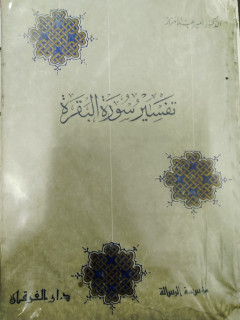 تفسير سورة البقرة
مؤسسة الرسالة
دار الفرقان